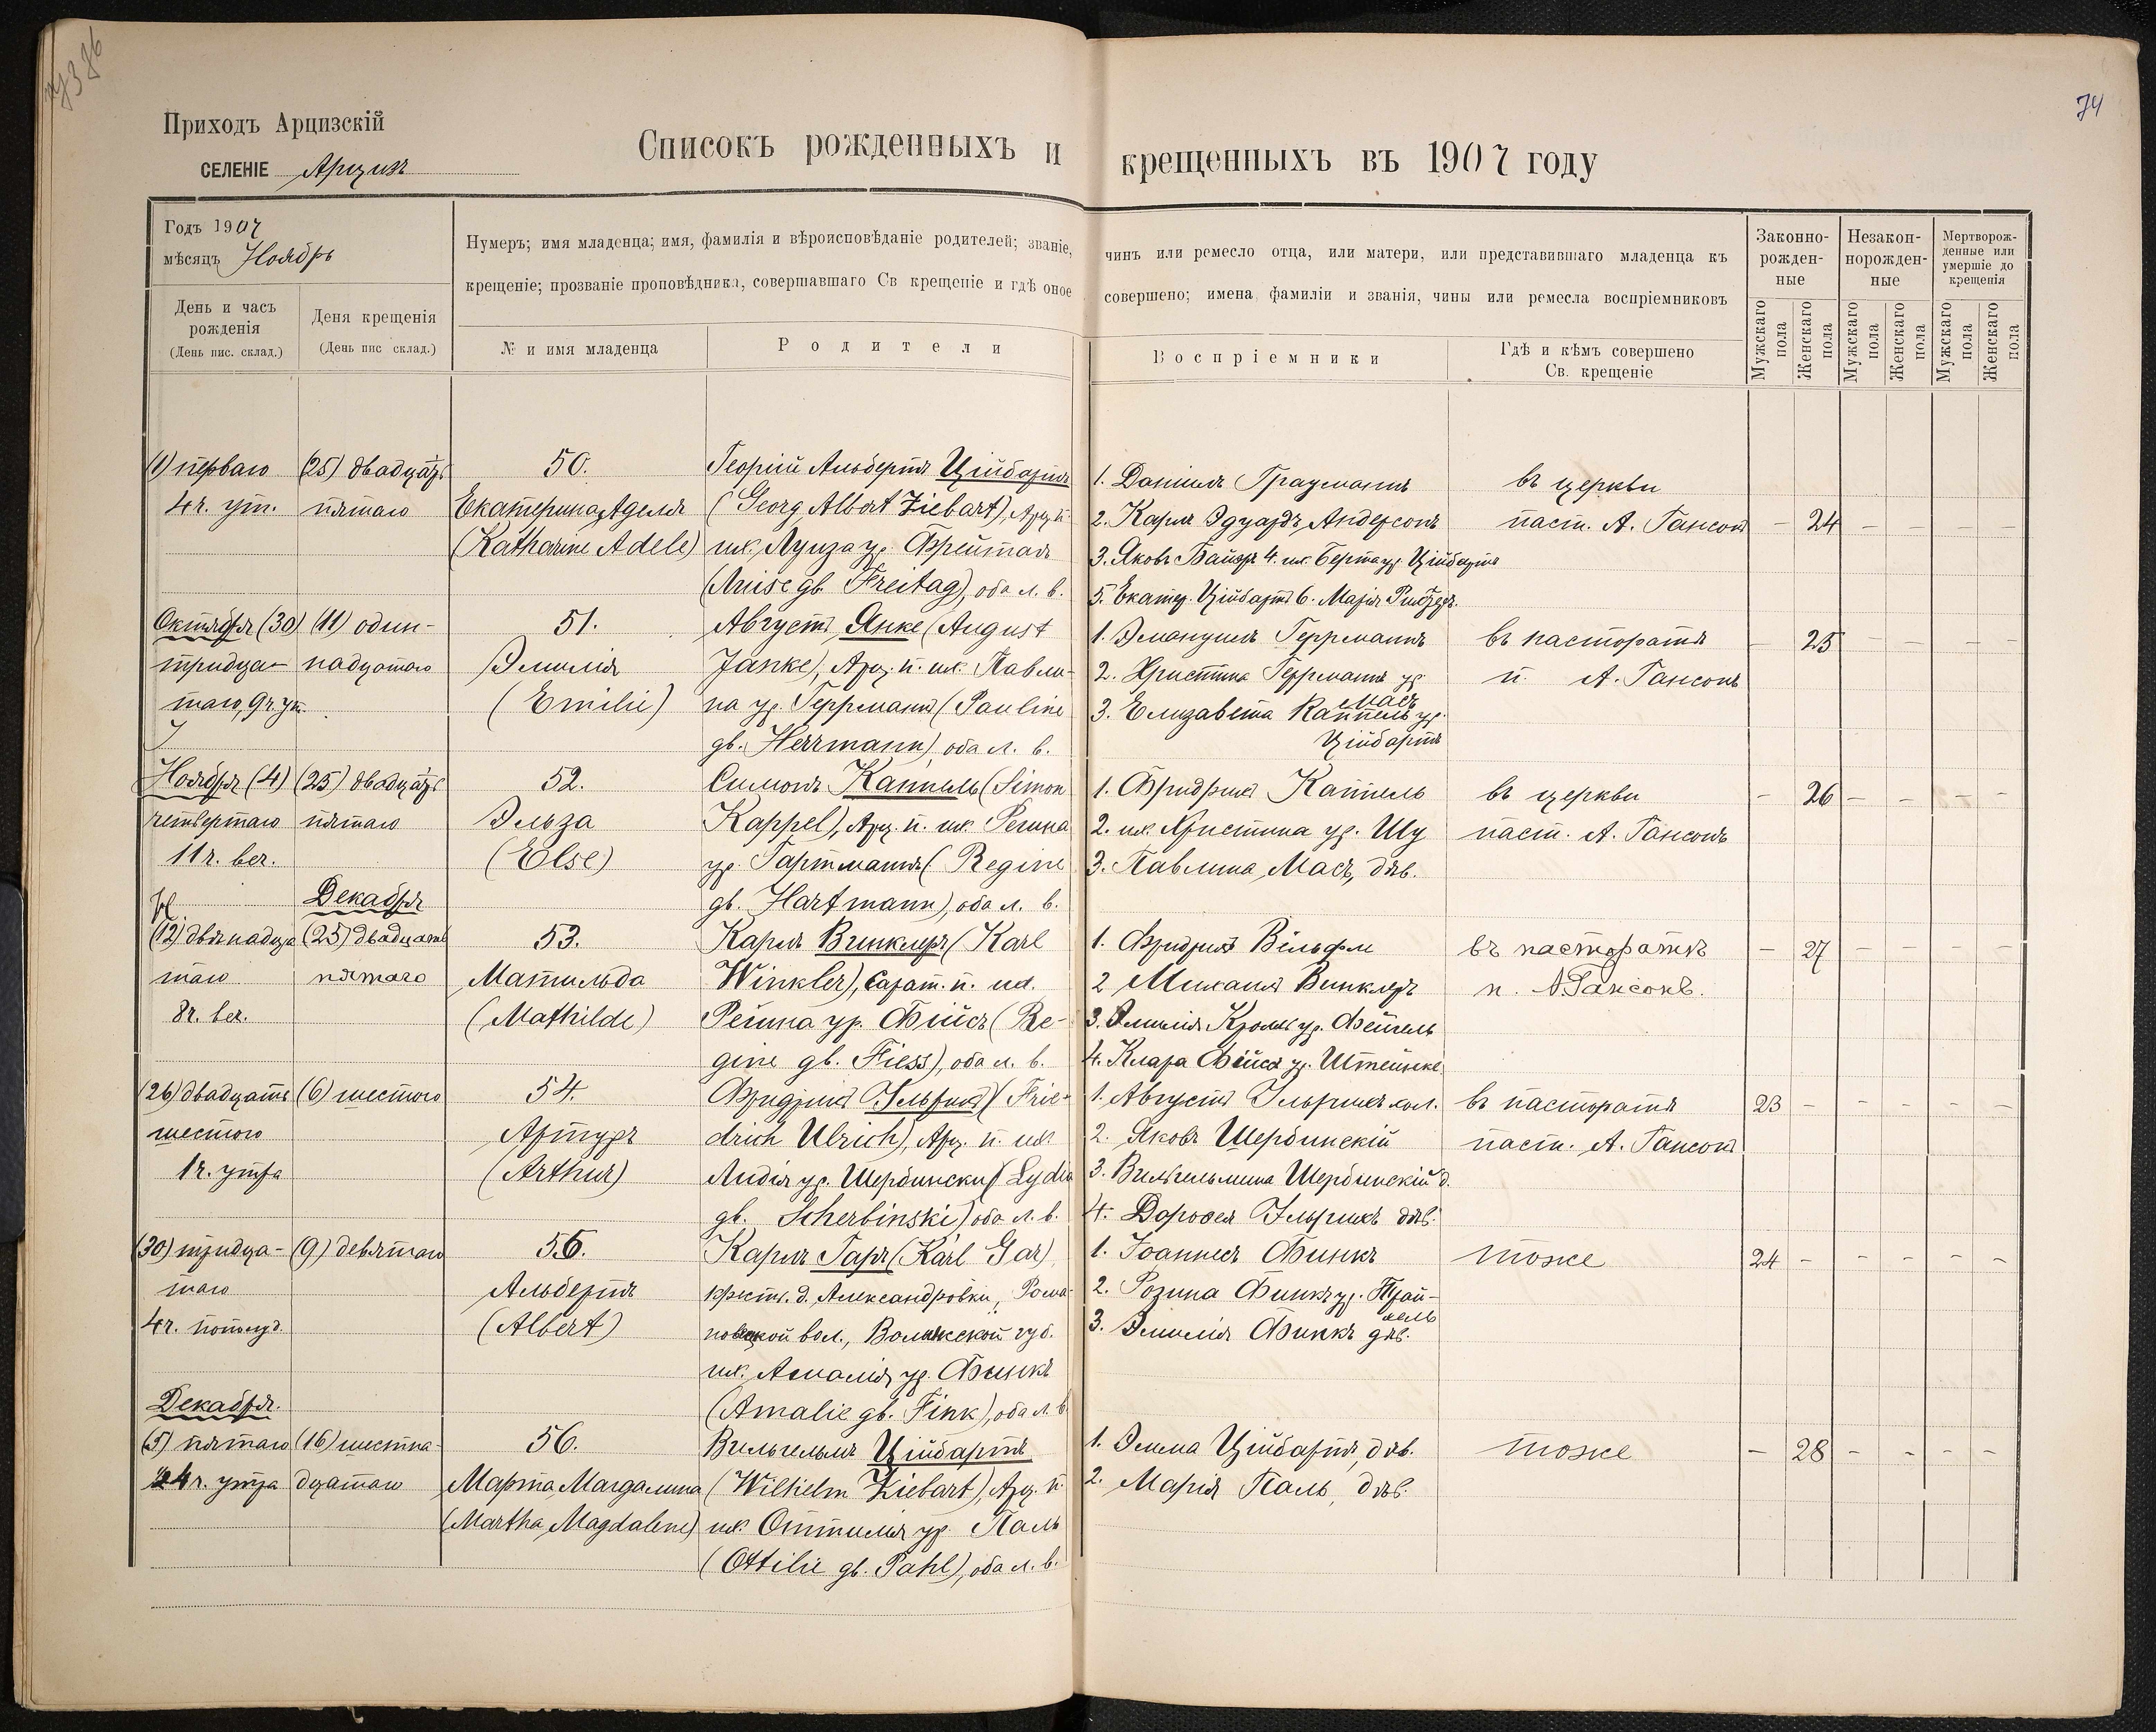 74
Приходъ Арцизскій
СЕЛЕНІЕ Арцизъ
Списокъ рожденныхъ и крещенныхъ въ 1907 году
Годъ 1907
мѣсяцъ Ноябрь
День и часъ рожденія
(День пис. склад.)
Деня крещенія
(День пис склад.)
Нумеръ; имя младенца; имя, фамилія и вѣроисповѣданіе родителей; званіе, чинъ или ремесло отца, или матери, или представившаго младенца къ
крещеніе; прозваніе проповѣдника, совершавшаго Св крещеніе и гдѣ оное совершено; имена, фамиліи и званія, чины или ремесла воспріемниковъ
№ и имя младенца
Родители
Воспріемники
Гдѣ и кѣмъ совершено
Св. крещеніе
Законно-
рожден-
ные
Незакон-
норожден-
ные
Мертворож-
денные или
умершіе до
крещенія
Мужскаго пола
Женскаго пола
Мужскаго пола
Женскаго пола
Мужскаго пола
Женскаго пола
(1) перваго
4 ч. ут.
(25) двадцать
пятаго
50.
Екатерина Аделя
(Katharine Adele)
Георгій Альбертъ Ційбартъ
(Georg Albert Ziebart), Арц. п.
ж. Луиза ур. Фрейтагъ
(Luise gb. Freitag), оба л. в.
1. Даніилъ Траутманъ
2. Карлъ Эдуардъ Андерсонъ
3. Яковъ Байэръ 4. ж. Берта ур. Ційбартъ
5. Екатер. Ційбартъ 6. Марія
въ церкви
паст. А. Гансонъ
– 24 – – – –
Октября (30)
тридца-
таго, 9 ч. ут.
(11) один-
надцатаго
51.
Эмилія
(Emilie)
Августъ Янке (August
Janke), Арц. п. ж. Павли-
на ур. Геррманъ (Pauline
gb. Herrmann), оба л. в.
1. Эмануилъ Геррманнъ
2. Христина Геррманнъ ур.
Маасъ
3. Елизавета Каппель ур.
Ційбартъ
въ пасторатѣ
п. А. Гансонъ
– 25 – – – –
Ноября (4)
четвертаго
11 ч. веч.
(25) двадцать
пятаго
52.
Эльза
(Else)
Симонъ Каппель (Simon
Kappel), Арц. п. ж. Регина
ур. Гартманнъ (Regine
gb. Hartmann), оба л. в.
1. Фридрихъ Каппель
2. ж. Христина ур. Шу
3. Павлина Маасъ, дѣв.
въ церкви
паст. А. Гансонъ
– 26 – – – –
Декабря
(12) двѣнадца
таго
8 ч. веч.
(25) двадцать
пятаго
53.
Матильда
(Mathilde)
Карлъ Винклеръ (Karl
Winkler), Сарат. п. ж.
Регина ур. Фійсъ (Re-
gine gb. Fiess), оба л. в.
1. Фридрихъ Вільфле
2 Михаилъ Винклеръ
3. Эмилія Кроммъ ур. Фейгель
4. Клара Фійсъ ур. Штейнке
въ пасторатѣ
п. А. Гансонъ.
– 27 – – – –
(26) двадцать
шестого
1 ч. утра
(6) шестого
54.
Артуръ
(Arthur)
Фридрихъ Ульрихъ (Frie-
drich Ulrich), Арц. п. ж.
Лидія ур. Шербински (Lydia
gb. Scherbinski) оба л. в.
1. Августъ Ульрихъ хол.
2. Яковъ Шербинскій
3. Вильгельмина Шербинскій д.
4. Доровея Ульрихъ дѣв.
въ пасторатѣ
паст. А. Гансонъ
23 – – – – –
(30) тридца-
таго
4 ч. пополуд.
(9) девятаго
55.
Альбертъ
(Albert)
Карлъ Гаръ (Karl Gar)
крест. д. Александровки, Рома-
новской вол., Волынской губ.
ж. Амалія ур. Финкъ
(Amalie gb. Fink), оба л. в.
1. Іоаннесъ Финкъ
2. Розина Финкъ ур.
3. Эмилія Финкъ дѣв.
тоже
24 – – – – –
Декабря.
(5) пятаго
4 ч. утра
(16) шестна-
дцатаго
56.
Марта Магдалина
(Martha Magdalene)
Вильгельмъ Ційбартъ
(Wilhelm Ziebart), Арц. п.
ж. Оттилія ур. Паль
(Ottilie gb. Pahl), оба л. в.
1. Эмма Ційбартъ, дѣв.
2. Марія Паль, дѣв.
тоже
– 28 – – – –